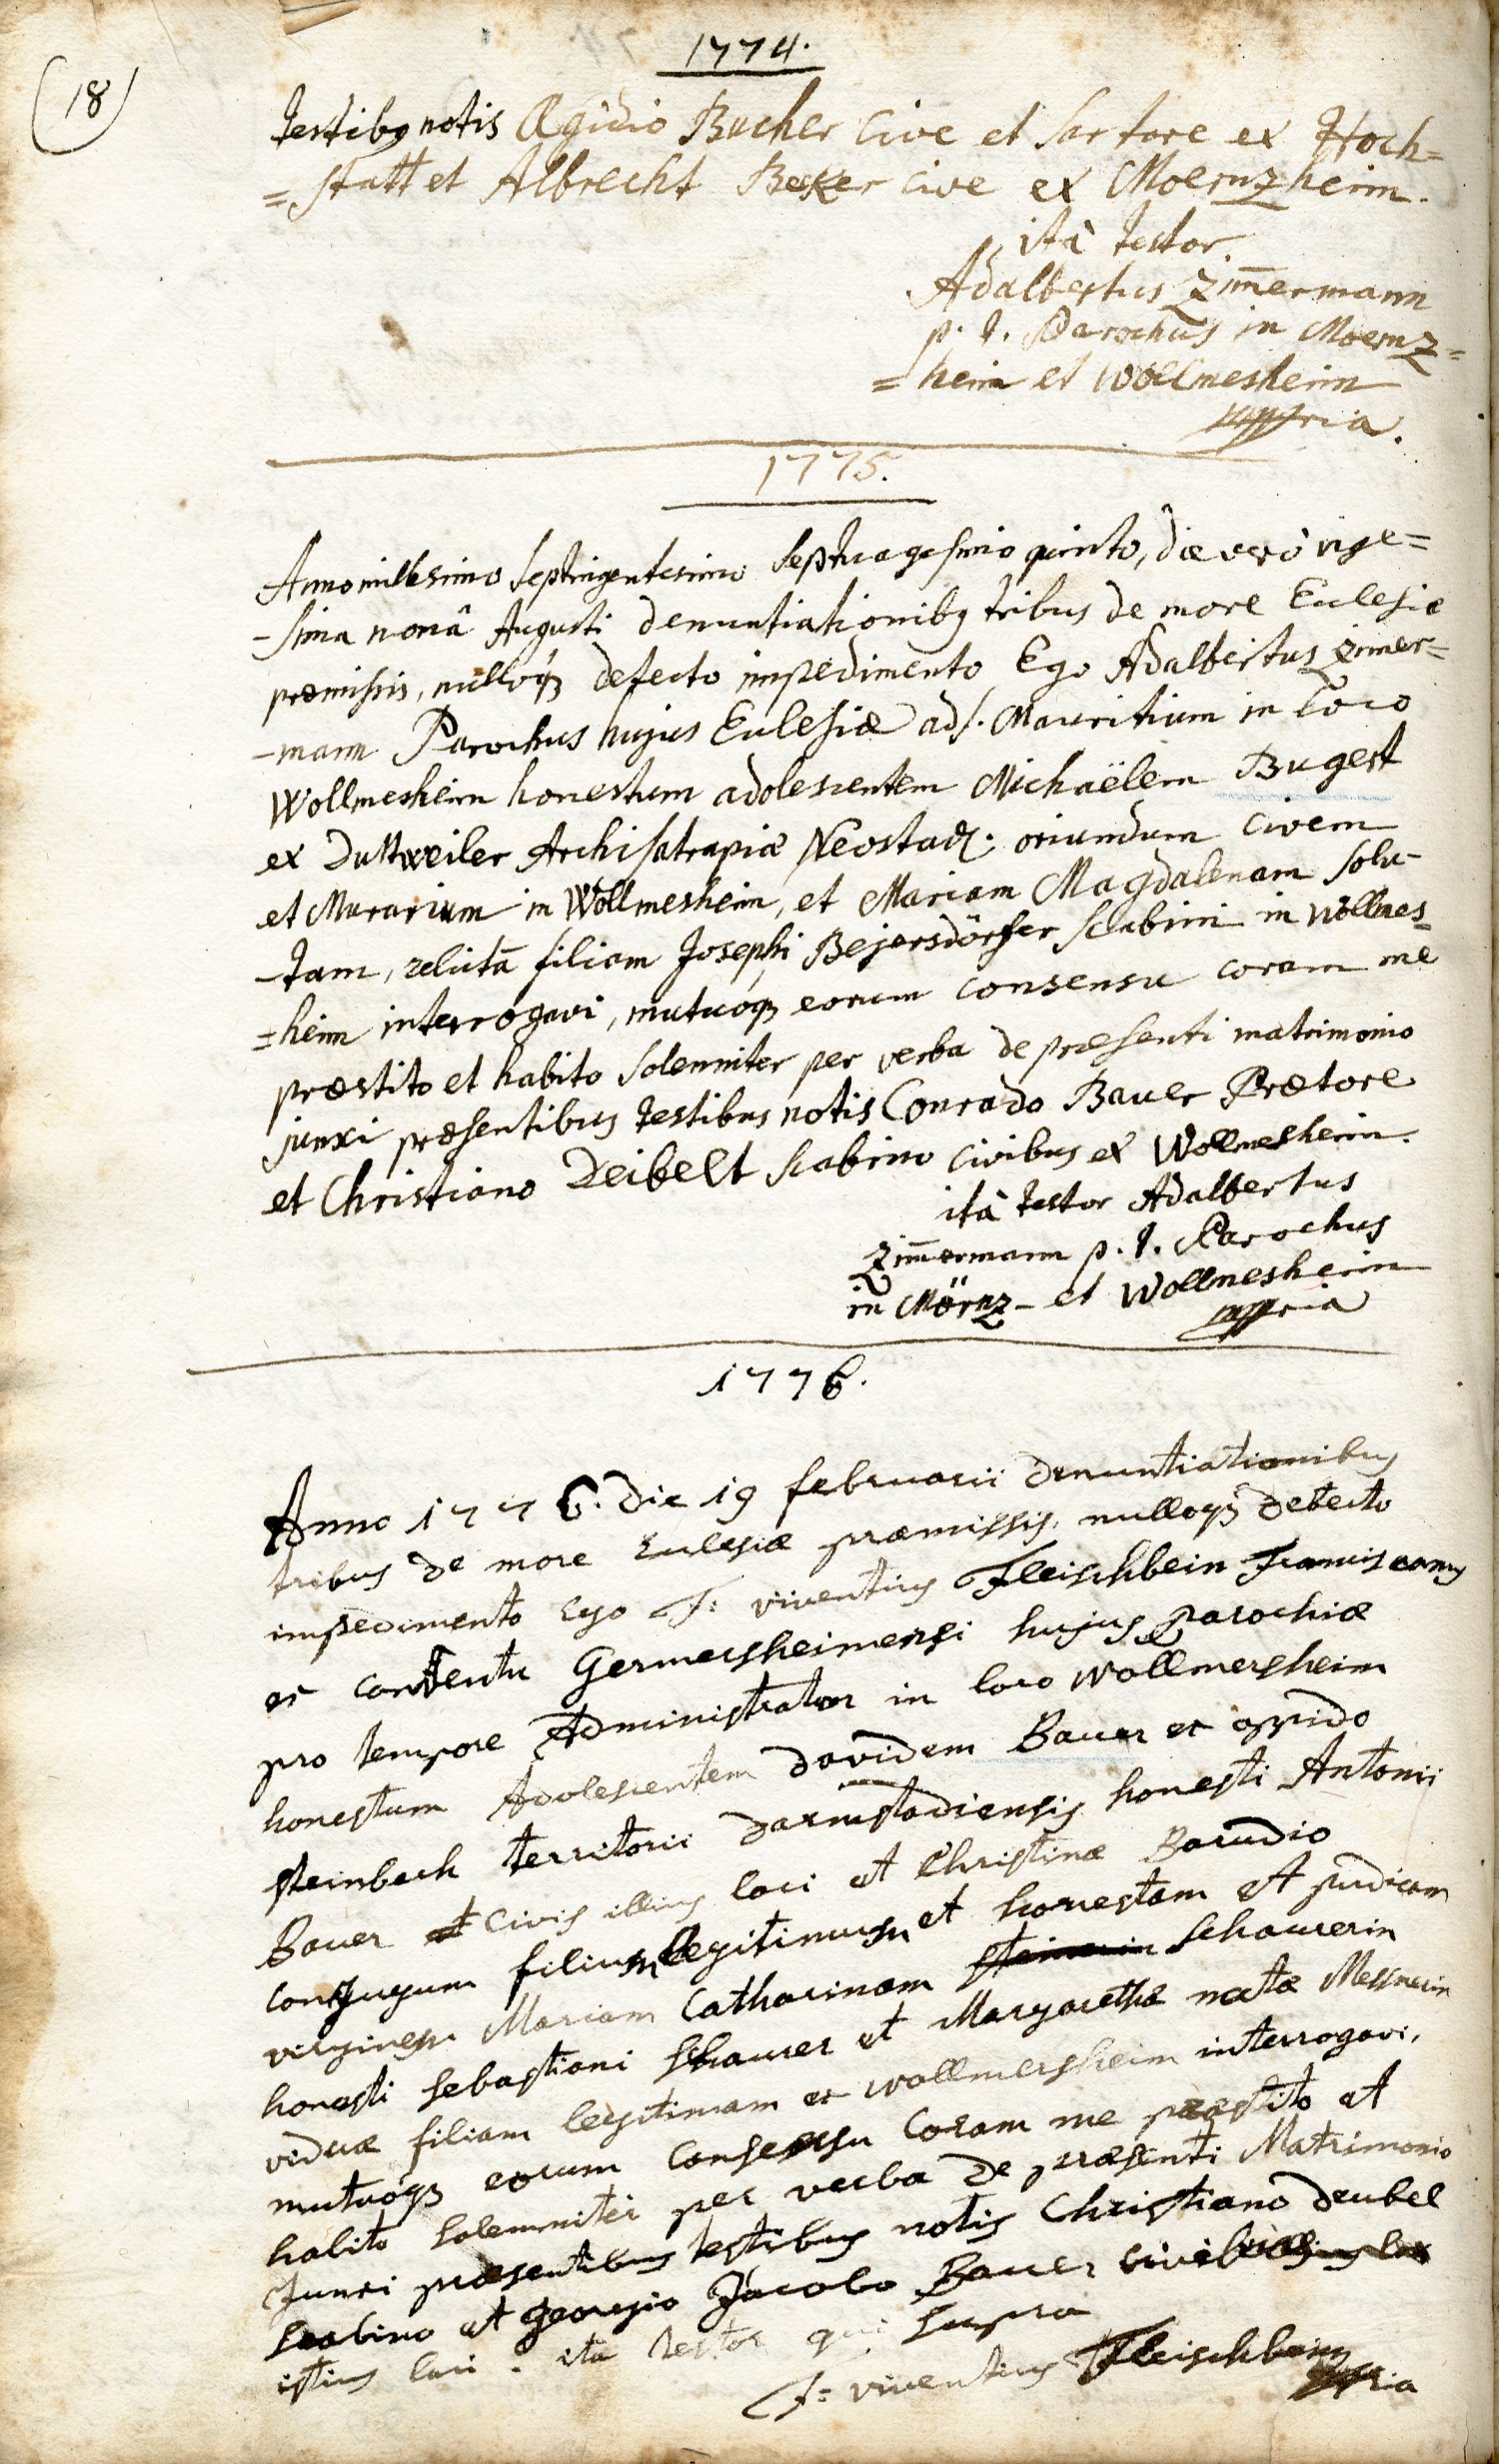 1774.
(18)
testibq notis Ægidio Bucher Cive et Sartore ex Hoch=
=statt et Albrecht Beker Cive ex Moernzheim.
ità testor.
Adalbertus Zim̄ermann
p. t. Parochus in Moernz=
=heim et Wollmesheim
mppria.
1775.
Anno millesimo Septingentesimo Septuagesimo quinto, die verò vige=
-sima nonâ Augusti denuntiationibq tribus de more Ecclesiæ
præmissis, nulloq₃ detecto impedimento Ego Adalbertus Zimer=
-mann Parochus hujus Ecclesiæ ad S. Mauritium in Loco
Wollmesheim honestum adolescentem Michaëlem Bugert
ex Duttweiler Archisatrapiæ Neostad: oriundum Civem
et Murarium in Wollmesheim, et Mariam Magdalenam Solu-
-tam, relictā filiam Josephi Bejersdörfer Scabini in Wollmes=
=heim interrogavi, mutuóq₃ eorum consensu coram me
præstito et habito Solemniter per verba de præsenti matrimonio
junxi præsentibus testibus notis Conrado Bauer Prætore
et Christiano Deibelt Scabino Civibus ex Wollmesheim.
ità testor Adalbertus
Zim̄ermann p. t. Parochus
in Mörnz- et Wollmesheim
mppria
1776.
Anno 1776. die 19 februarii denuntiationibus
tribus de more Ecclesiæ præmissis, nulloq₃ detecto
impedimento Ego F: viventius Fleischbein Franciscanus
ex conventu Germersheimensi hujus parochiæ
pro tempore Administrator in loco Wollmersheim
honestum Adolescentem davidem Bauer ex oppido
steinbach territorii darmstadiensis honesti Antonii
Bauer et Civis illius loci et Christinæ Barudio
Conjugum filium legitimum et honestam et pudicam
virginem Mariam Catharinam steinerin Schaurerin
honesti Sebastiani Schaurer et Margarethæ natæ Messnerin
viduæ filiam legitimam ex wollmersheim interrogavi,
mutuóq₃ eorum Consensu Coram me præstito et
habito Solemniter per verba de præsenti Matrimonio
Junxi præsentibus testibus notis Christiano deubel
Scabino et Georgio Jacobo Bauer civibus
istius loci. ita testor qui supra
F: viventius Fleischbein
mppria